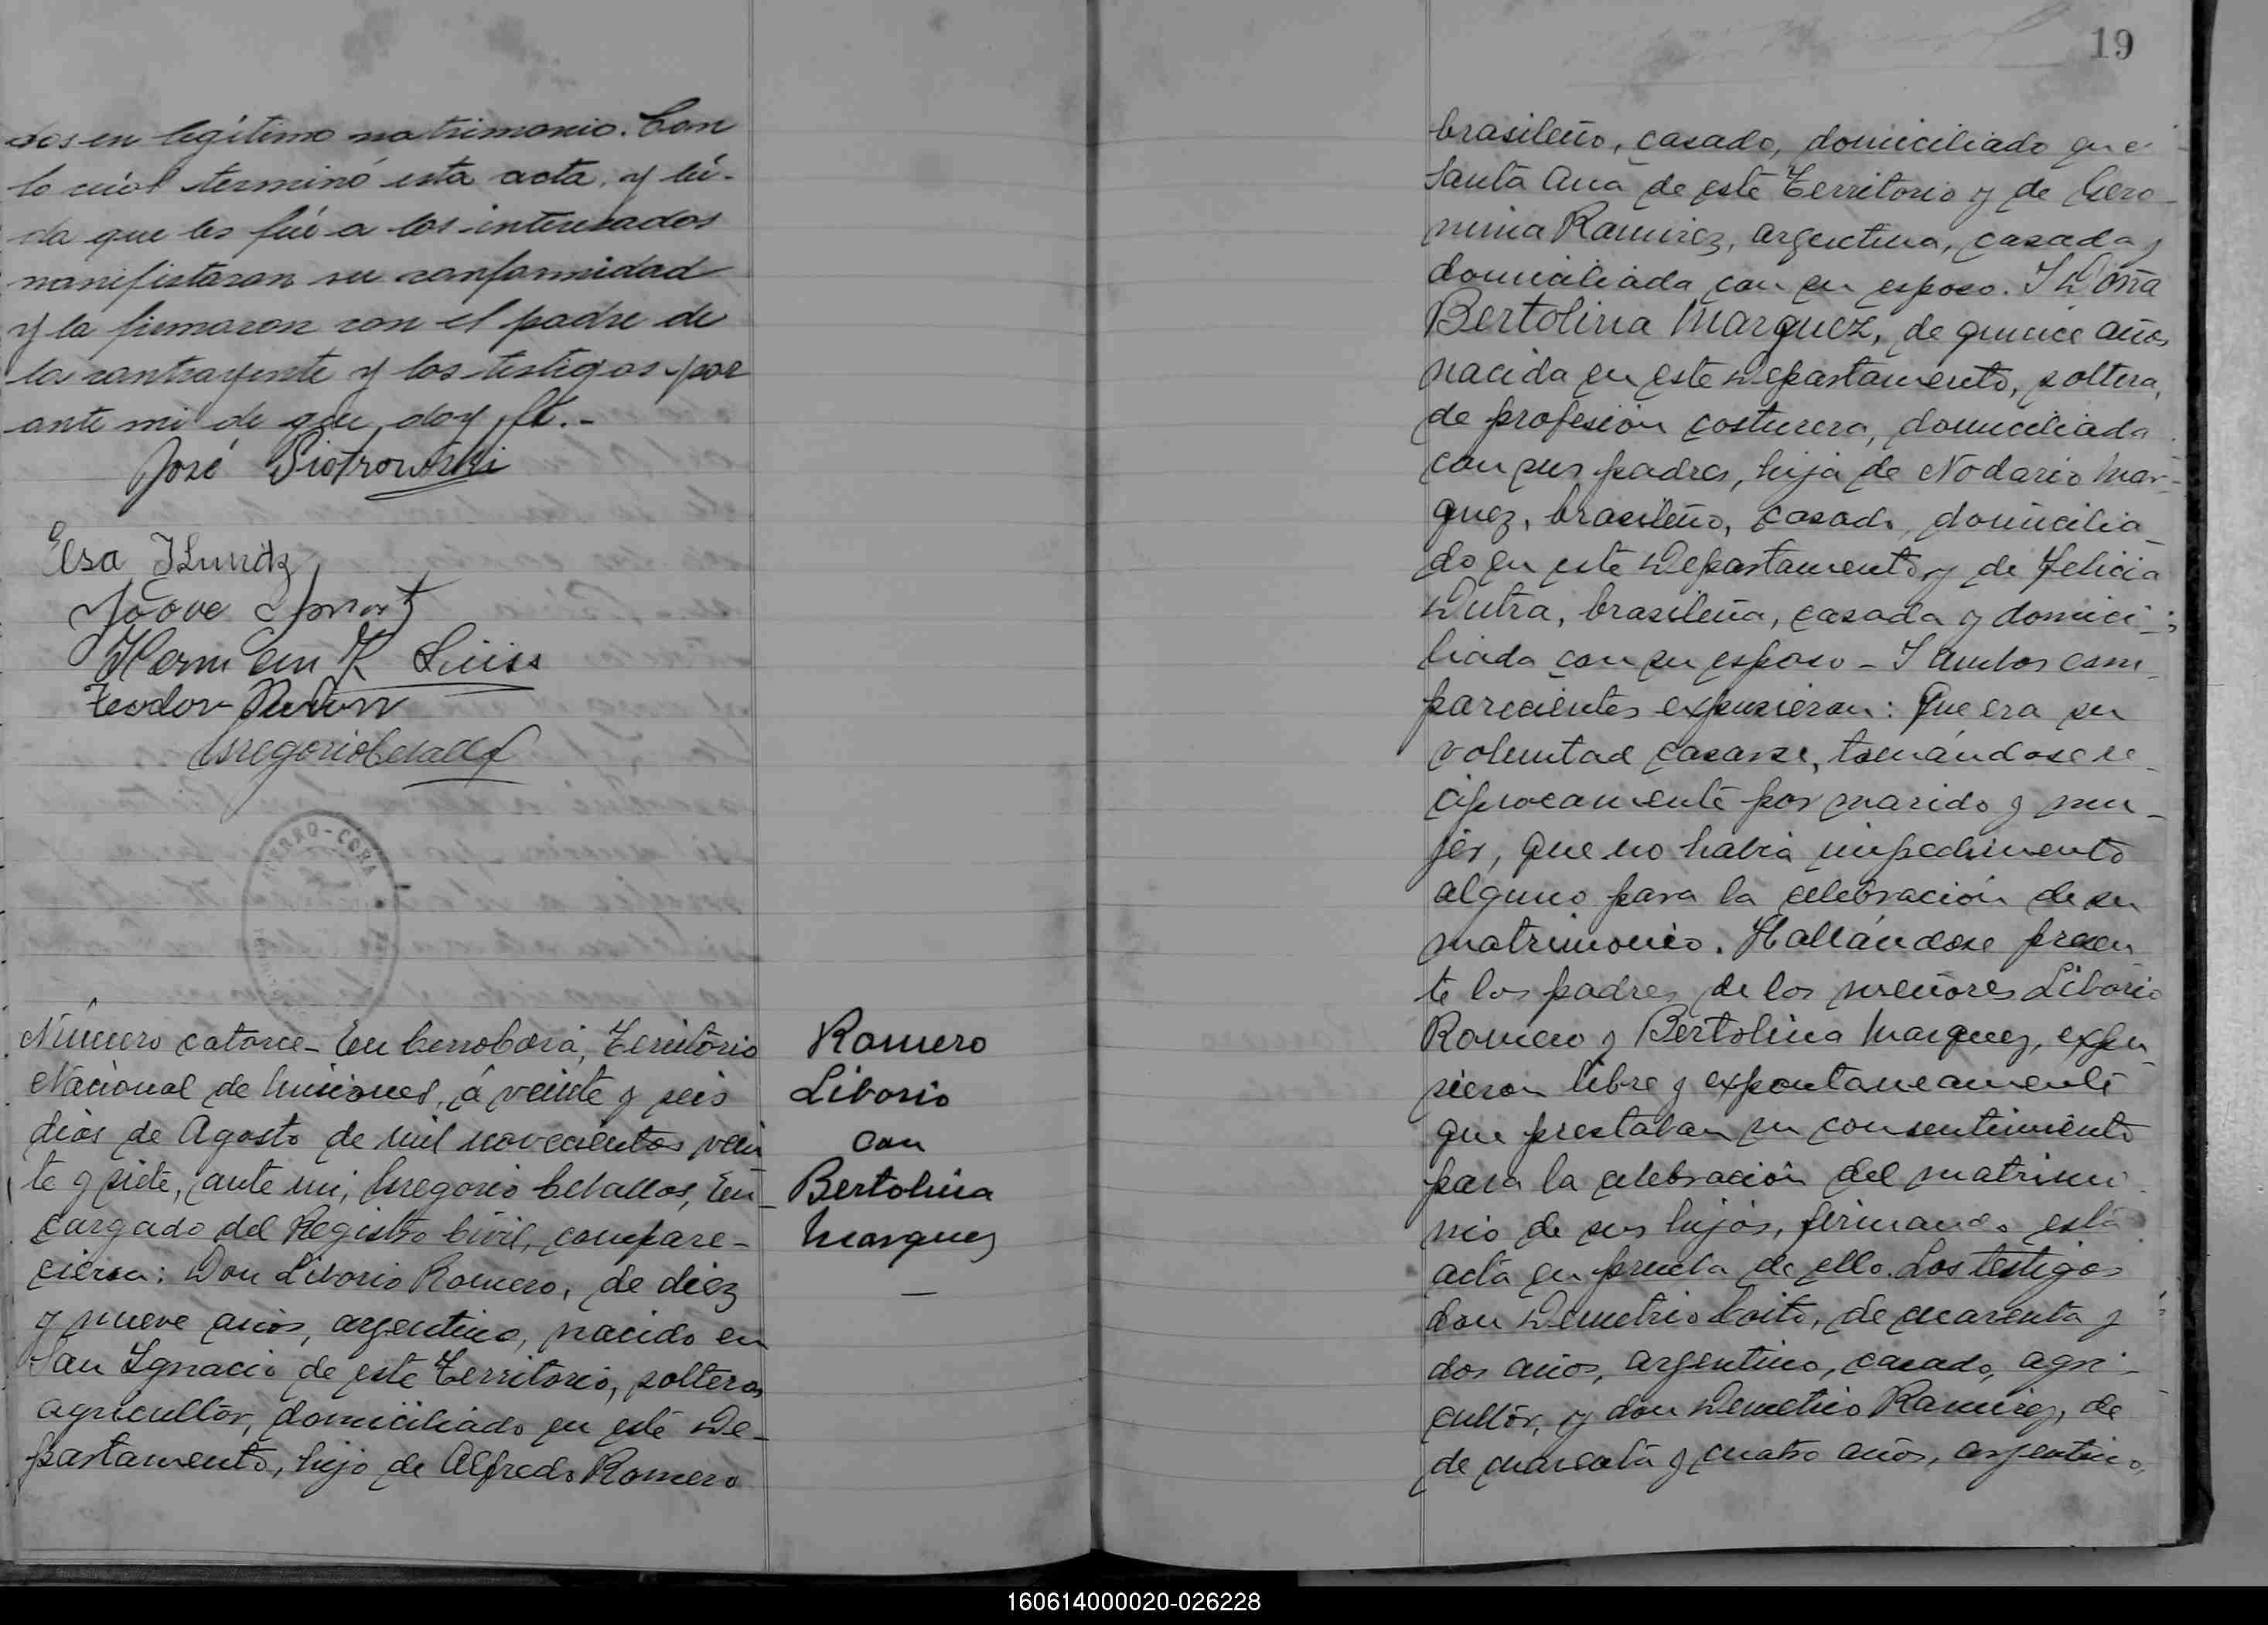 dos en legítimo matrimonio. Con
lo cúal terminó esta acta, y leí-
da que les fúe a los interesados
manifestaron su conformidad
y la firmaron con el padre de
la contrayente y los testigos por
ante mi de que doy fé.-
José Piotrowski
Elsa
Teodor
Gregorio Ceballos
CERRO-CORA
Número catorce - En Cerro Corá, Territorio
Nacional de Misiones, á veinte y seis
dias de Agosto de mil novecientos vein
te y siete, ante mi, Gregorio Ceballos, En-
cargado del Registro Civil, compare-
cieron: Don Liborio Romero, de diez
y nueve años, argentino, nacido en
San Ignacio de este Territorio, soltero,
agricultor, domiciliado en este De-
partamento, hijo de Alfredo Romero
Romero
Liborio
con
Bertolina
Marquez
19
brasileño, casado, domiciliado que
Santa Ana de este Territorio y de Gero-
nima Ramirez, argentina, casada y
domiciliada con su esposo. I Doña
Bertolina Marquez, de quince años,
nacida en este Departamento, soltera,
de profesión costurera, domiciliada
con sus padres, hija de Nodario Mar-
quez, brasileño, casado, domicilia-
do en este Departamento y de Felicia
Dutra, brasileña, casada y domici-
liada con su esposo - I ambos com-
parecientes expusieron: Que era su
voluntad casarse, tomándose re-
ciprocamente por marido y mu-
jer, que no habia impedimento
alguno para la celebración de su
matrimonio. Hallándose presen
te los padres de los menores Liborio
Romero y Bertolina Marquez, expu-
sieron libre y expontaneamente
que prestaban su consentimiento
para la celebración del matrimo
nio de sus hijos, firmando esta
acta en prueba de ello. Los testigos
don Demetrio Coito, de cuarenta y
dos años, argentino, casado, agri-
cultor, y don Demetrio Ramirez, de
de cuarenta y cuatro años, argentino,
160614000020-026228